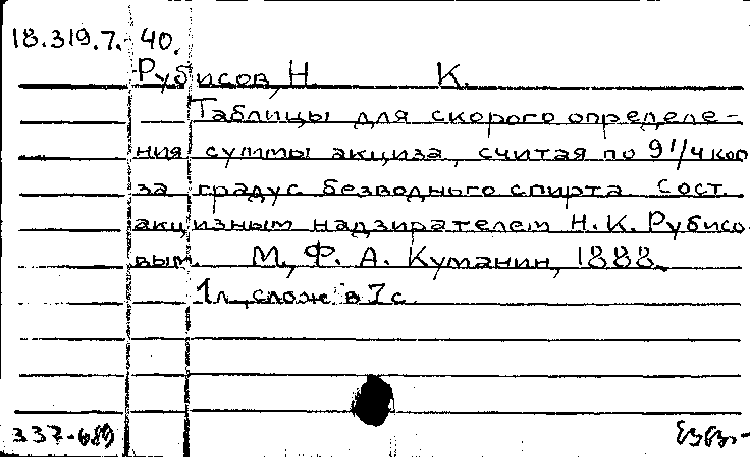 18.319.7.- 40.
Рубисов, Н. К.
Таблицы для скорого определе-
ния суммы акциза, считая по 9 1/4 коп
за градус безводного спирта. Сост.
акцизным надзирателем Н.К. Рубисо-
вым. М., Ф. А. Куманин, 1888.
1 л., слож. в 7 с.
337-689